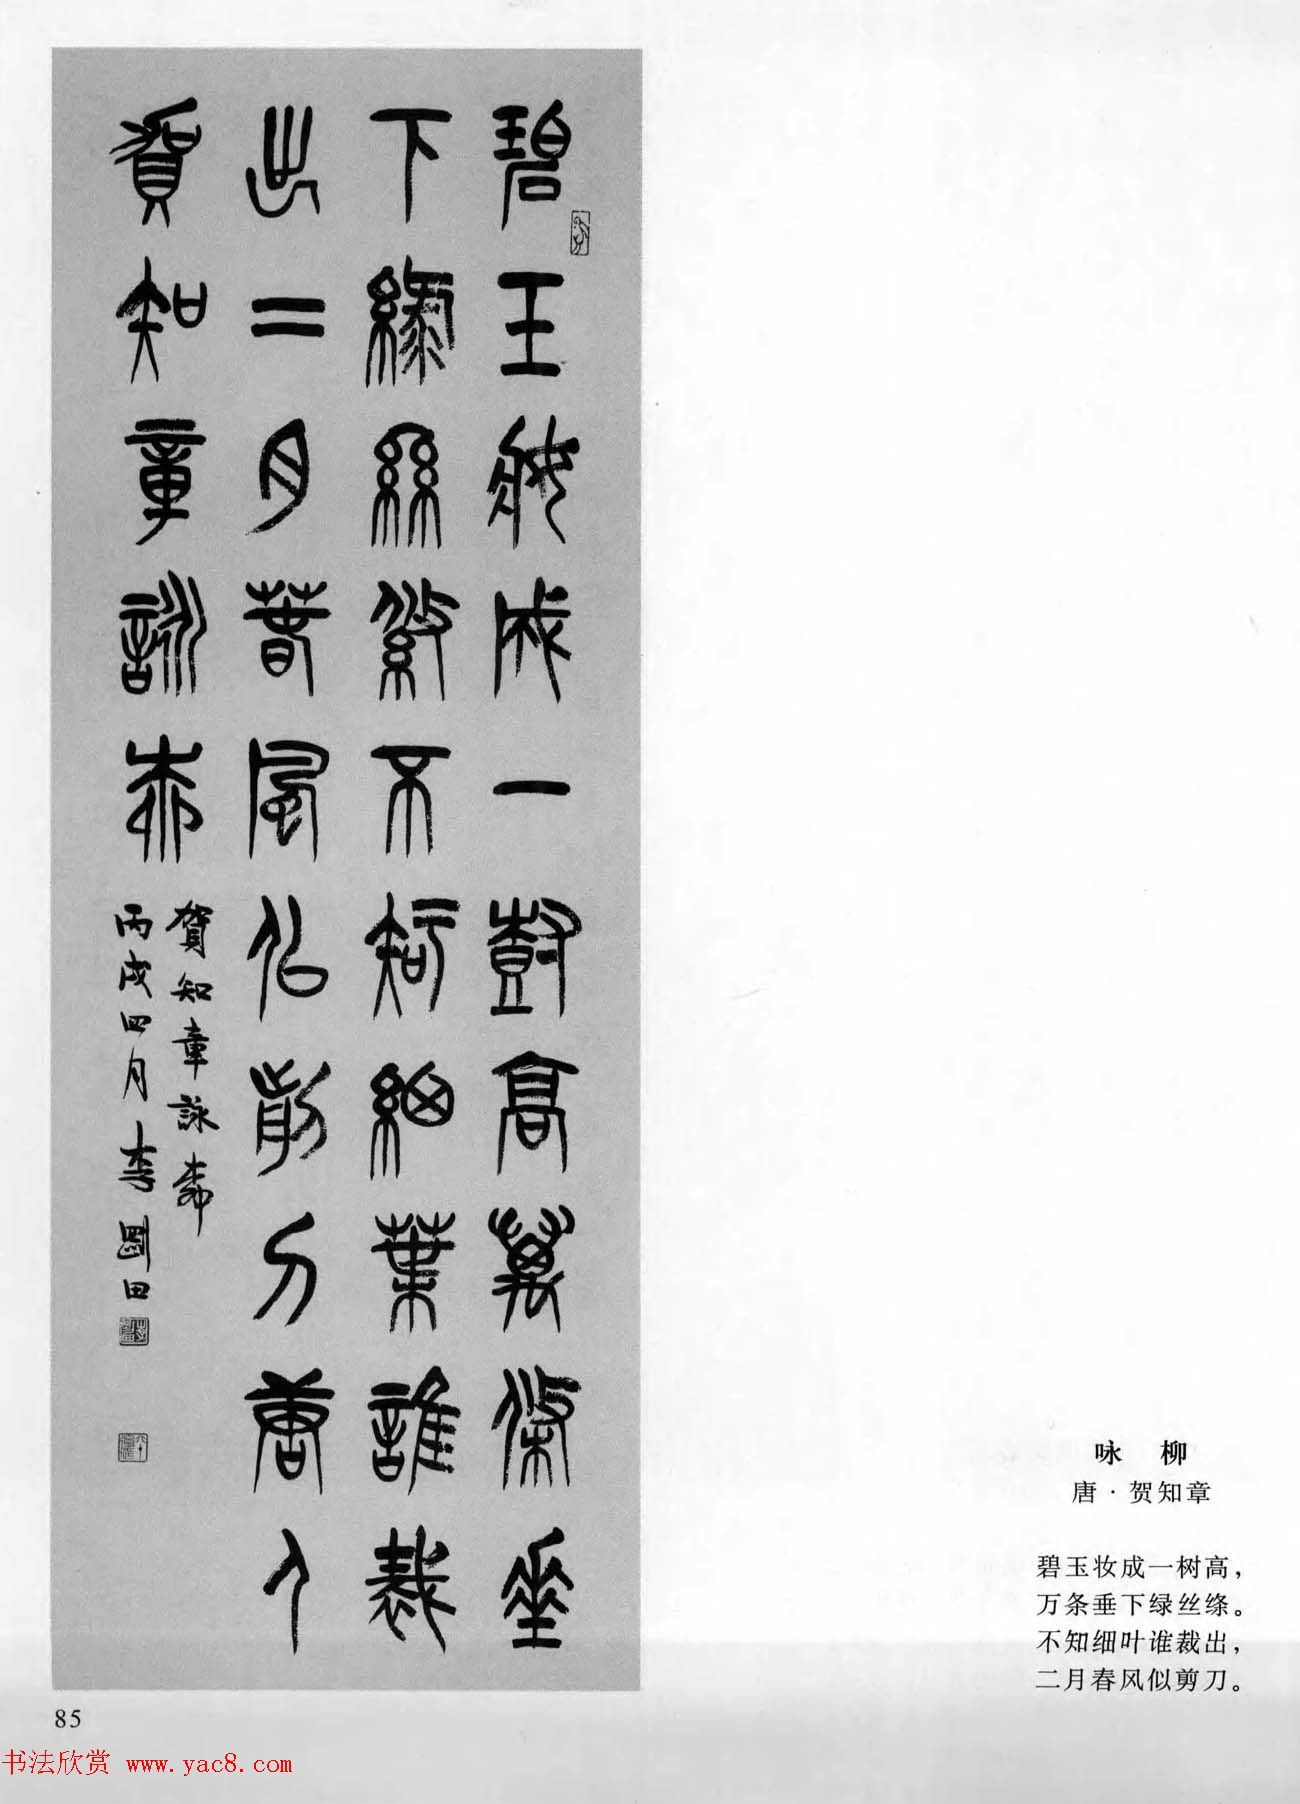 碧玉妝成一尌高萬條垂
下綠絲絛不知細葉誰裁
出二月春風佀前刀唐人
賀知章詠柳
賀知章詠柳
丙戌四月李剛田
咏 柳
唐·贺知章
碧玉妆成一树高，
万条垂下绿丝绦。
不知细叶谁裁出，
二月春风似剪刀。
85
书法欣赏 www.yac8.com